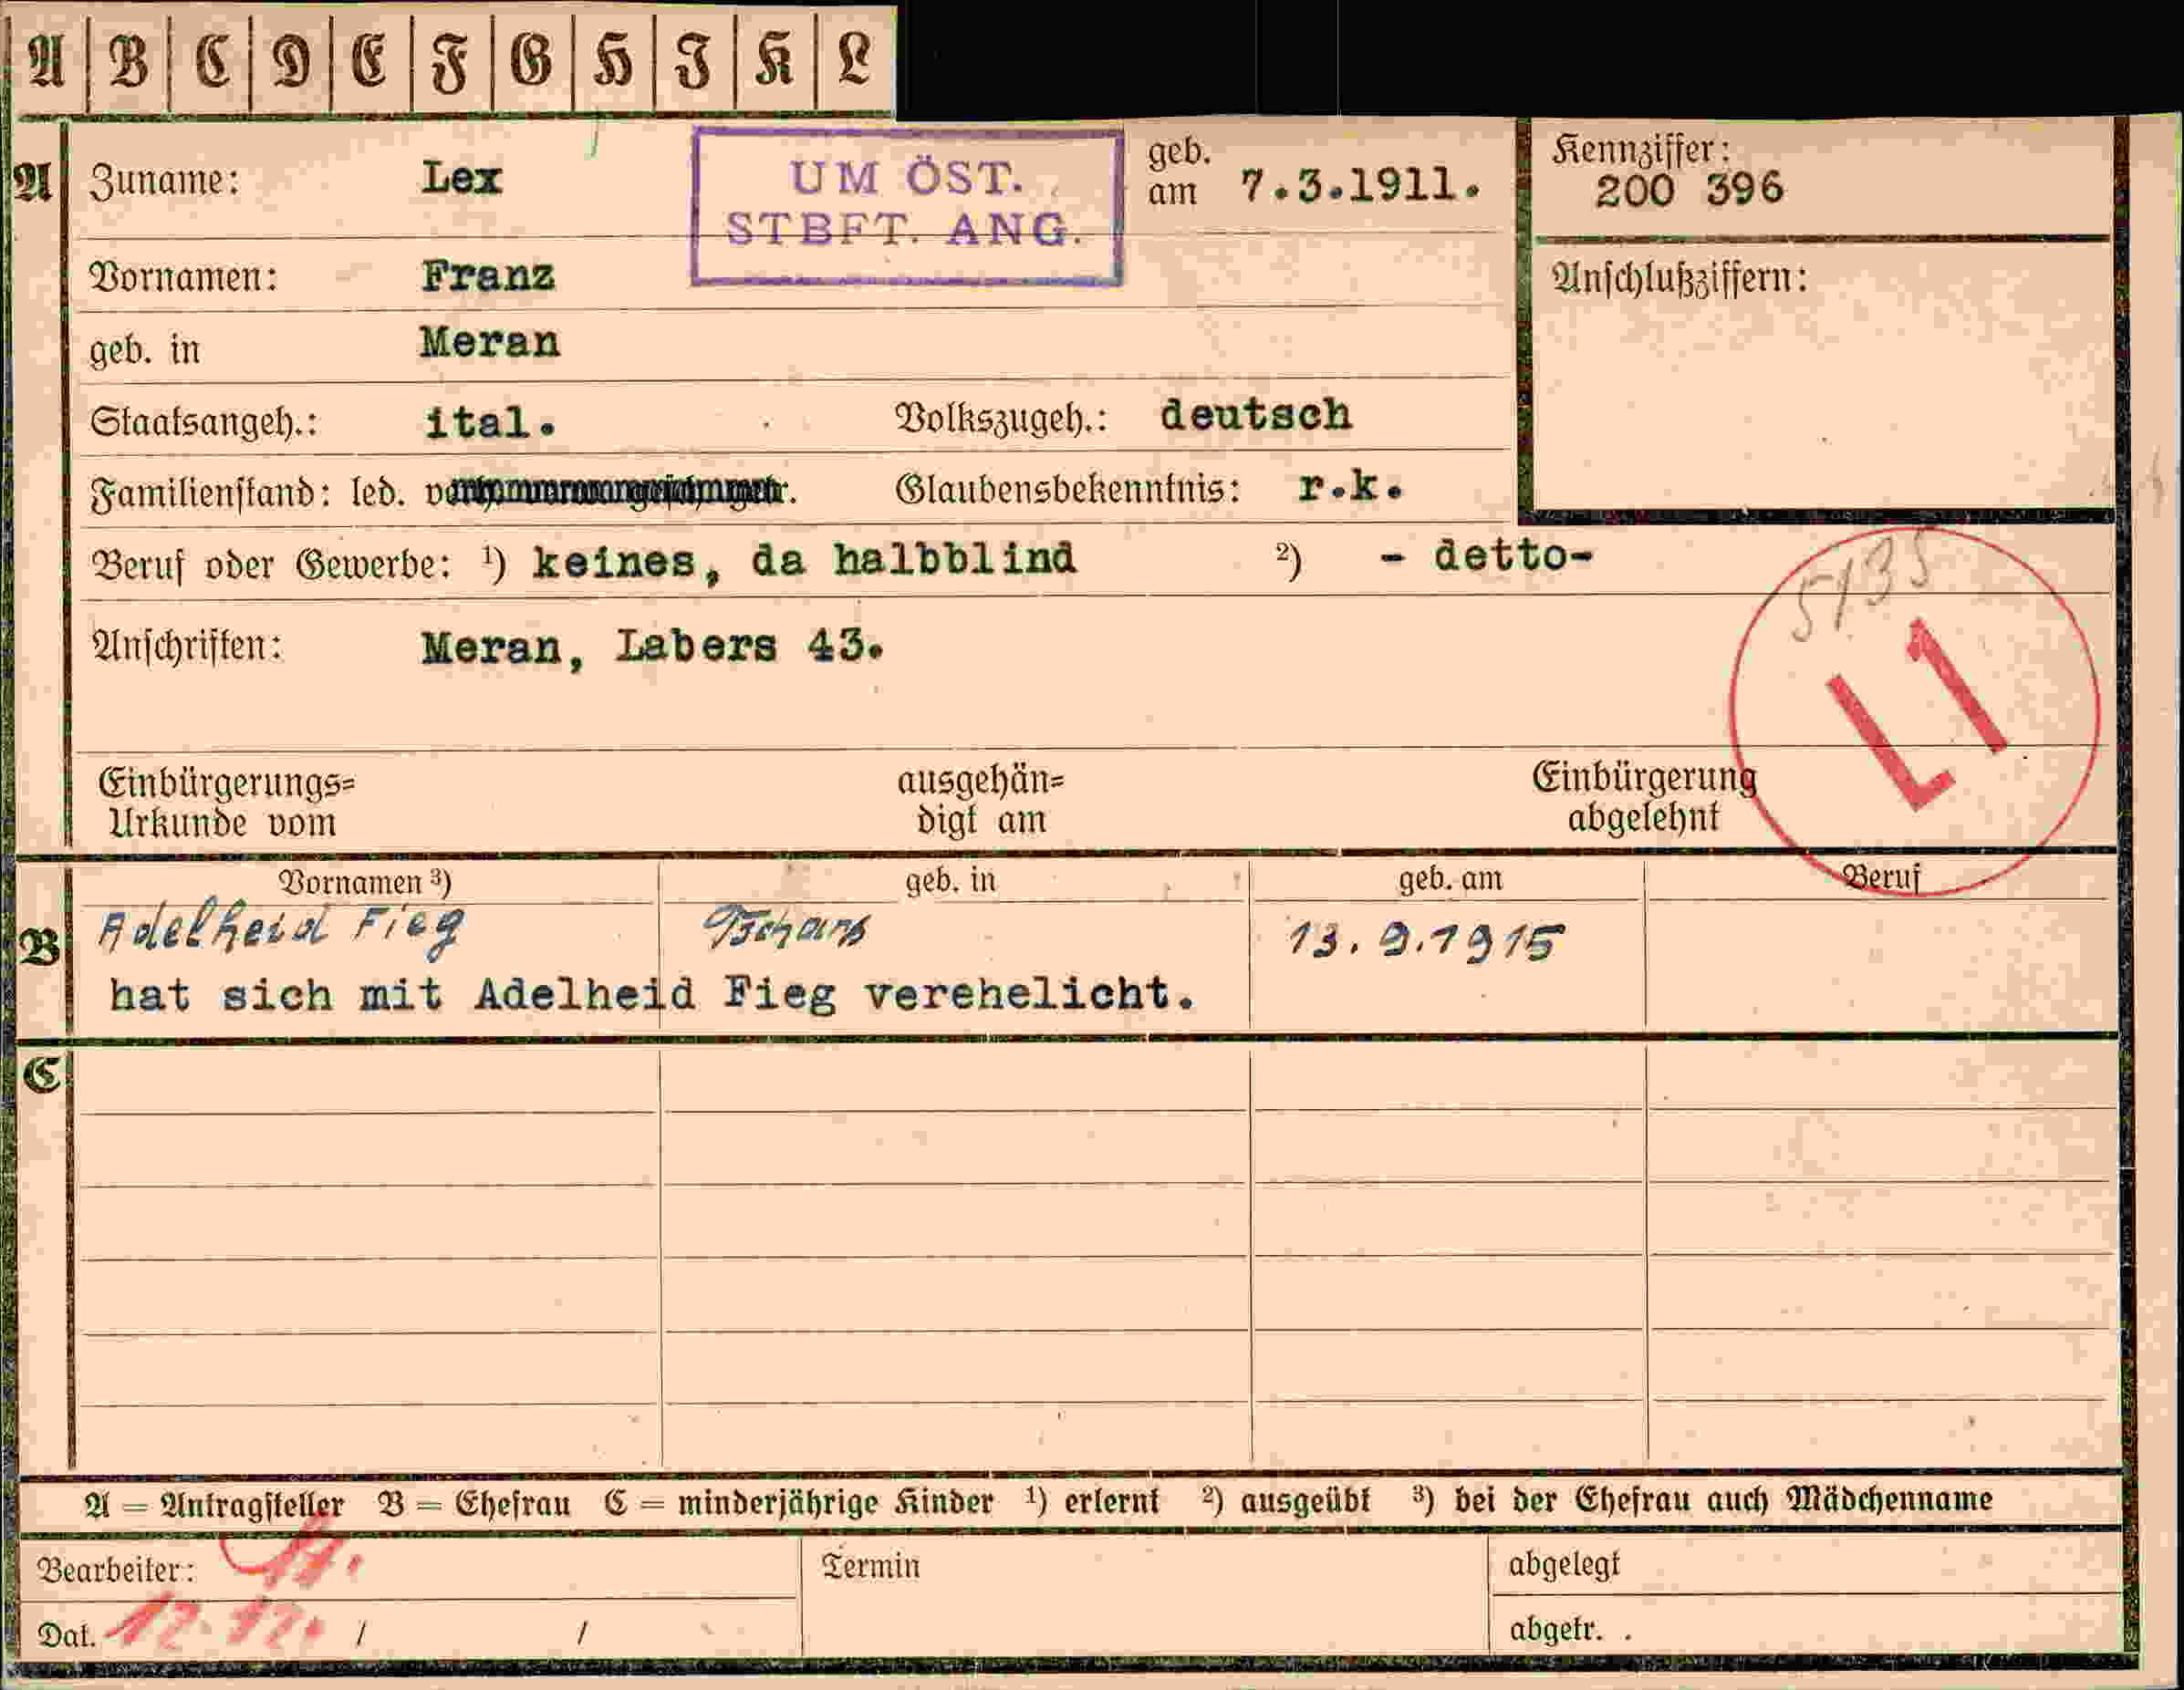 A B C D E F G H I K L
A Zuname: Lex
UM ÖST.
STBFT. ANG.
geb.
am 7.3.1911.
Kennziffer:
200 396
Vornamen: Franz
Anschlußziffern:
geb. in Meran
Staatsangeh.: ital. Volkszugeh.: deutsch
Familienstand: led. Glaubensbekenntnis: r.k.
Beruf oder Gewerbe: ¹) keines, da halbblind ²) - detto-
5135
Anschriften: Meran, Labers 43.
L1
Einbürgerungs=
Urkunde vom
ausgehän=
digt am
Einbürgerung
abgelehnt
Vornamen ³) geb. in geb. am Beruf
B Adelheid Fieg Tschars 13.9.1915
hat sich mit Adelheid Fieg verehelicht.
C
A = Antragsteller B = Ehefrau C = minderjährige Kinder ¹) erlernt ²) ausgeübt ³) bei der Ehefrau auch Mädchenname
Bearbeiter: Termin abgelegt
Dat. 12.12. / / abgetr. .